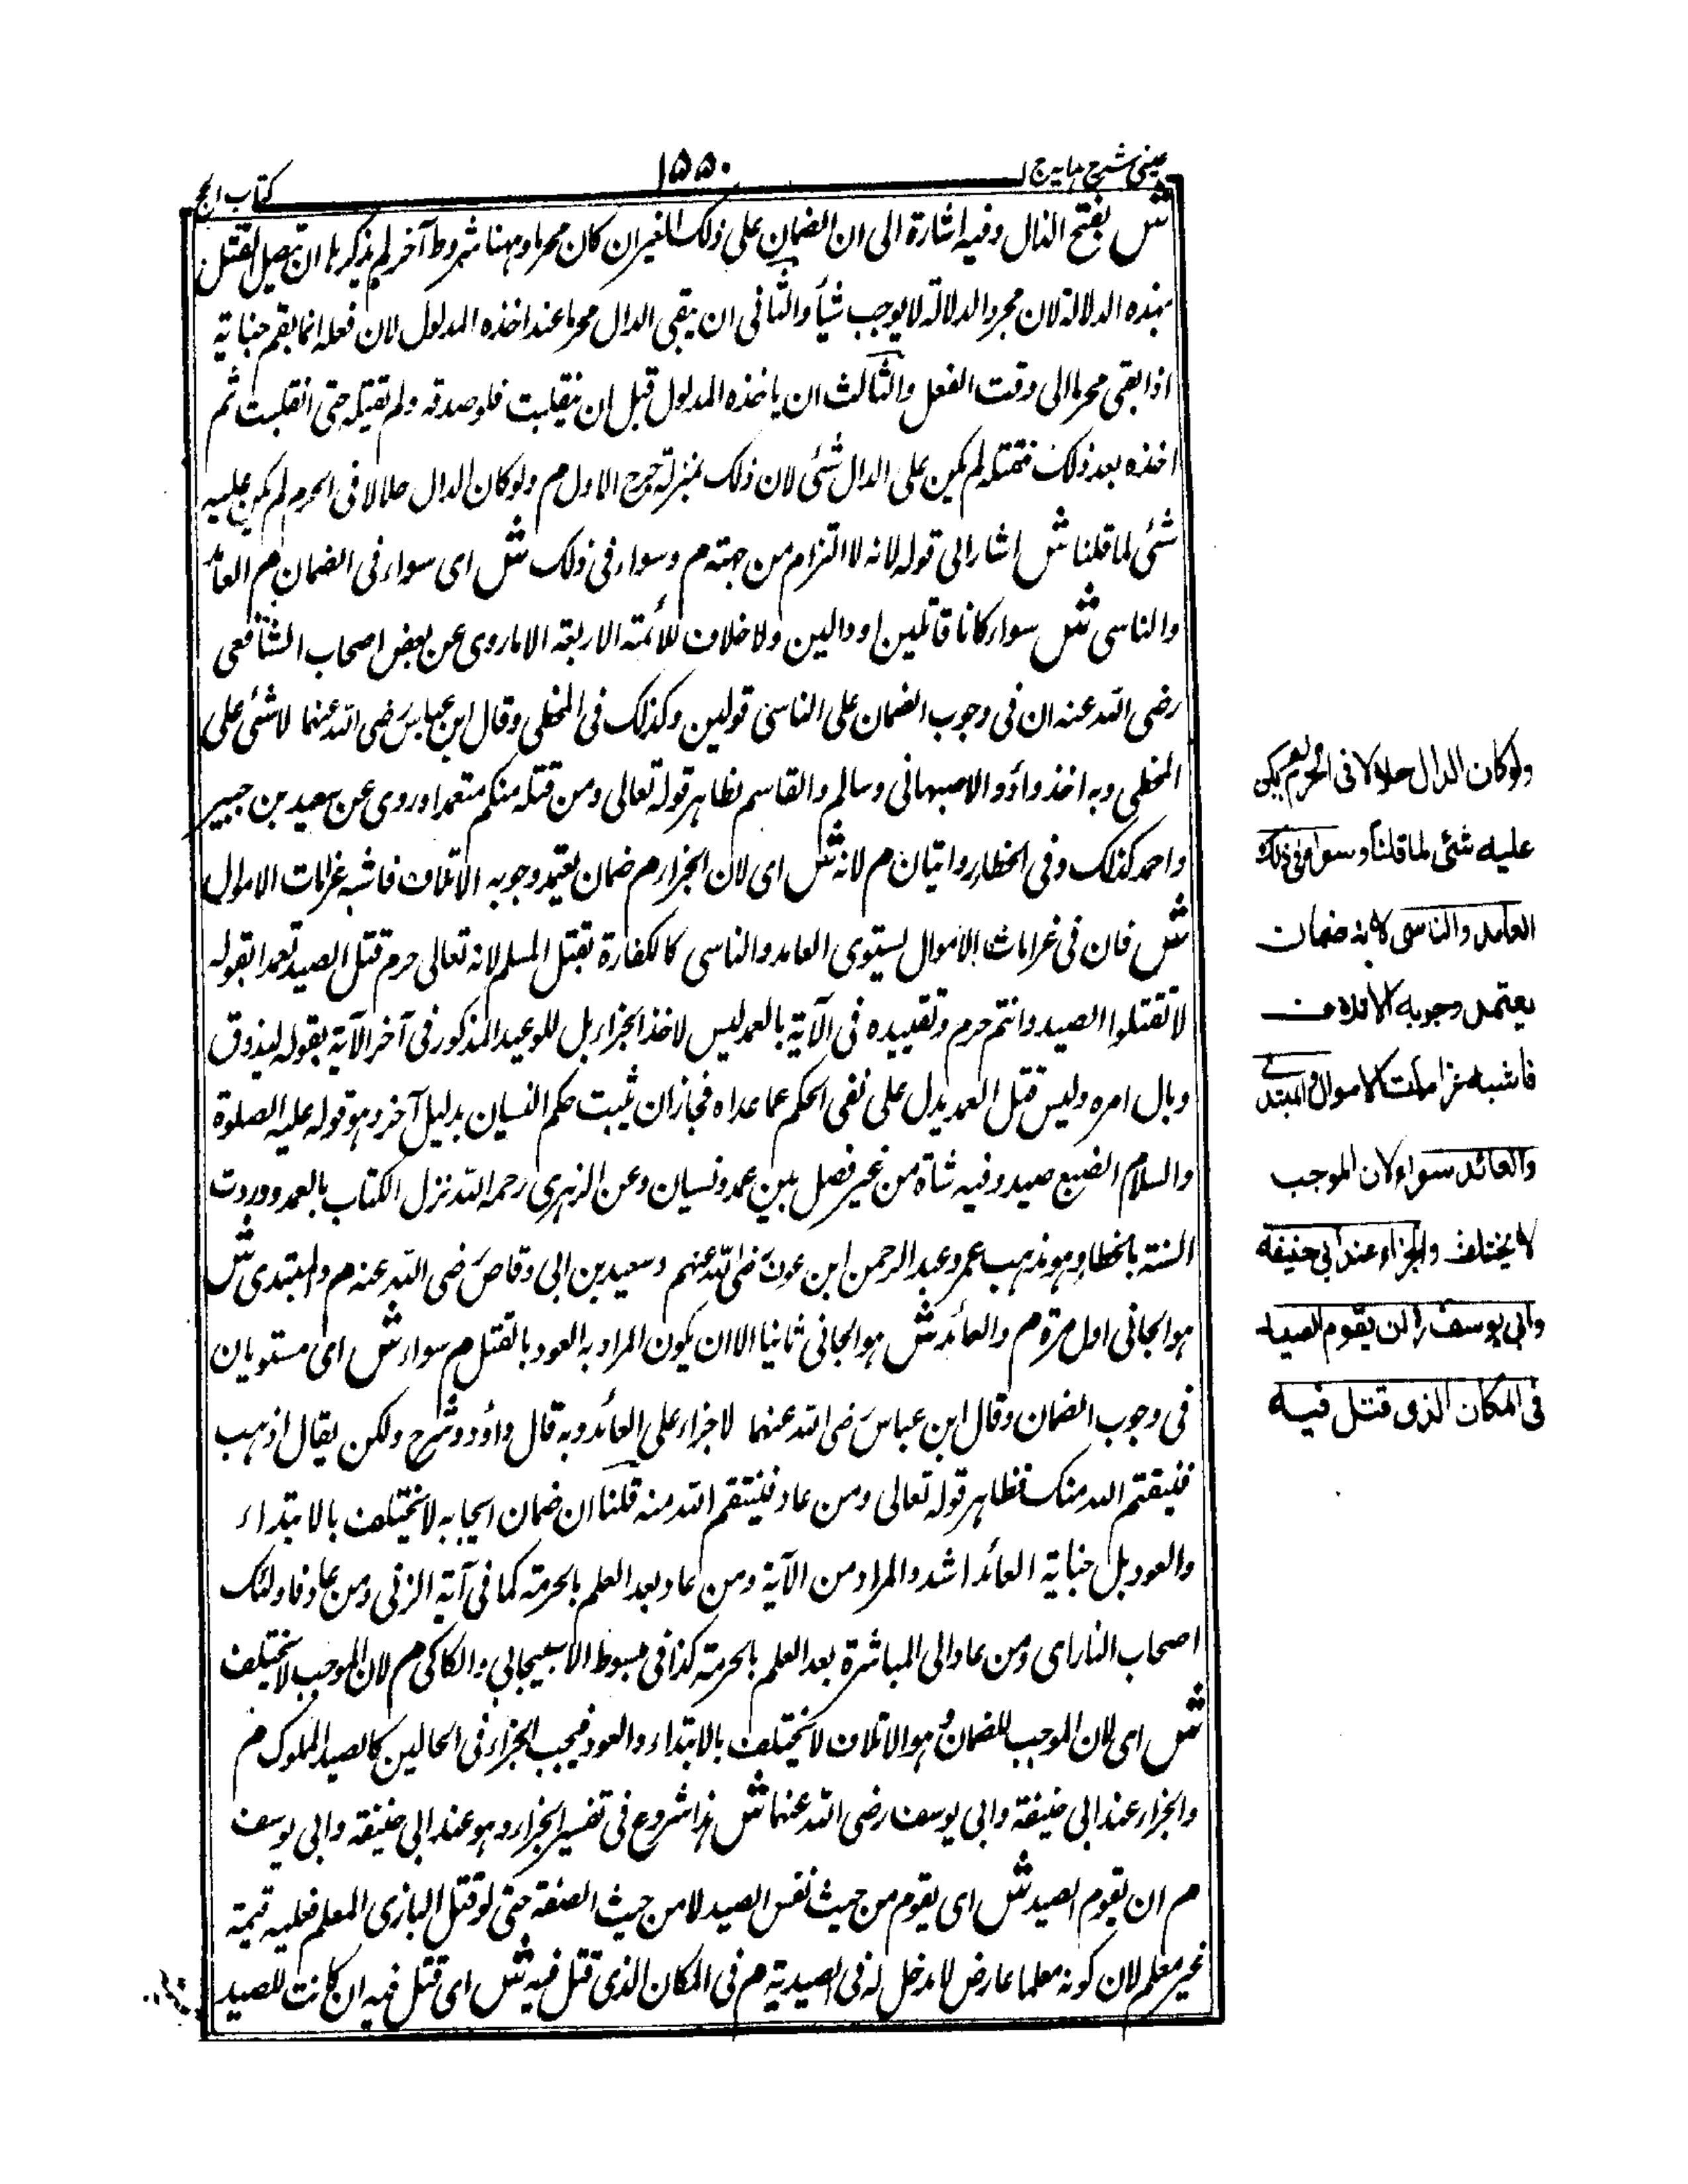 عینی شرح ہدایہ ج ا
۱۵۵۰
کتاب الحج
ش بفتح الدال وفیہ اشارة الی ان الضمان علی ذلک الغیر ان کان محرما وہہنا شروط آخر لم یذکرہا ان یتصل القتل
بہذہ الدلالة لان مجرد الدلالة لا یوجب شیأ والثانی ان یبقی الدال محرما عند اخذہ المدلول لان فعلہ انما یقم جنایة
اذا بقی محرما الی وقت الفعل والثالث ان یاخذہ المدلول قبل ان ینقلبت فلو صدقہ ولم یقتلہ حتی انقلبت ثم
اخذہ بعد ذلک فقتلہ لم یکن علی الدال شئی لان ذلک بمنزلة جرح الاول م ولو کان الدال حلالا فی الحرم لم یکن علیہ
شئی لما قلنا ش اشار الی قولہ لانہ لا التزام من جہتہ م وسواء فی ذلک ش ای سواء فی الضمان م العامد
والناسی ش سواء کانا قاتلین او دالین ولا خلاف للائمة الاربعة الا ما روی عن بعض اصحاب الشافعی
رضی اللہ عنہ ان فی وجوب الضمان علی الناسی قولین وکذلک فی المخطی وقال ابن عباس رضی اللہ عنہما لا شئی علی
المخطی وبہ اخذ داؤد الاصبہانی وسالم والقاسم بظاہر قولہ تعالی ومن قتلہ منکم متعمدا وروی عن سعید بن جبیر
واحمد کذلک وفی الخطاء روایتان م لانہ ش ای لان الجزاء م ضمان یعتمد وجوبہ الاتلاف فاشبہ غرامات الاموال
ش فان فی غرامات الاموال یستوی العامد والناسی کالکفارة بقتل المسلم لانہ تعالی حرم قتل الصید تعمدا بقولہ
لا تقتلوا الصید وانتم حرم وتقییدہ فی الآیة بالعمد لیس لاخذ الجزاء بل للوعید المذکور فی آخر الآیة بقولہ لیذوق
وبال امرہ ولیس قتل العمد یدل علی نفی الحکم عما عداہ فجاز ان یثبت حکم النسیان بدلیل آخر وہو قولہ علیہ الصلوة
والسلام الضبع صید وفیہ شاة من غیر فصل بین عمد ونسیان وعن الزہری رحمہ اللہ نزل الکتاب بالعمد ووردت
السنة بالخطاء وہو مذہب عمر وعبد الرحمن ابن عوف رضی اللہ عنہم وسعید بن ابی وقاص رضی اللہ عنہ م والمبتدی ش
ہو الجانی اول مرة م والعائد ش ہو الجانی ثانیا الا ان یکون المراد بہ العود بالقتل م سواء ش ای مستویان
فی وجوب الضمان وقال ابن عباس رضی اللہ عنہما لا جزاء علی العائد وبہ قال داؤد وشریح ولکن یقال اذہب
فینتقم اللہ منک فظاہر قولہ تعالی ومن عاد فینتقم اللہ منہ قلنا ان ضمان ایجابہ لا یختلف بالابتداء
والعود بل جنایة العائد اشد والمراد من الآیة ومن عاد بعد العلم بالحرمة کما فی آیة الزنی ومن عاد فاولئک
اصحاب النار ای ومن عاد الی المباشرة بعد العلم بالحرمة کذا فی مبسوط الاسبیجابی والکاکی م لان الموجب لا یختلف
ش ای لان الموجب للضمان وہو الاتلاف لا یختلف بالابتداء والعود فیجب الجزاء فی الحالین کالصید المملوک م
والجزاء عند ابی حنیفة وابی یوسف رضی اللہ عنہما ش ہذا شروع فی تفسیر الجزاء وہو عند ابی حنیفة وابی یوسف
م ان یقوم الصید ش ای یقوم من حیث نفس الصید لا من حیث الصنعة حتی لو قتل البازی المعلم فعلیہ قیمة
غیر معلم لان کونہ معلما عارض لا مدخل لہ فی الصیدیة م فی المکان الذی قتل فیہ ش ای قتل فیہ ان کانت للصید
ولو کان الدال حلالا فی الحرم لم یکن
علیہ شئی لما قلنا وسواء فی ذلک
العامد والناسی لانہ ضمان
یعتمد وجوبہ الاتلاف
فاشبہ غرامات الاموال والمبتدی
والعائد سواء لان الموجب
لا یختلف والجزاء عند ابی حنیفہ
وابی یوسف رح ان یقوم الصید
فی المکان الذی قتل فیہ